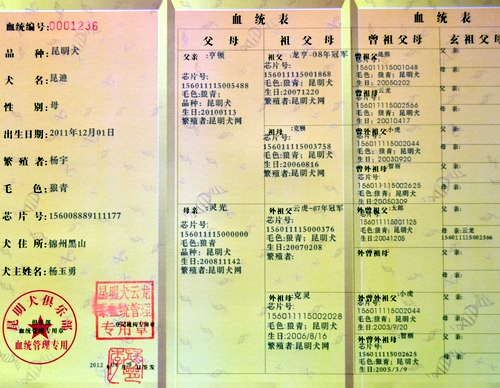 血统编号:0001236
品 种:昆明犬
犬 名:昆迪
性 别:母
出生日期:2011年12月01日
繁 殖 者:杨宇
毛 色:狼青
芯 片 号:156008889111177
犬 住 所:锦州黑山
犬主姓名:杨玉勇
昆明犬俱乐部
俱乐部
血统管理专用章
血统管理专用
昆明犬云龙
专用章
登记机构专用章
血 统 表
父 母
祖 父 母
父亲:亨顿
芯片号:
156011115005488
毛色:狼青
品种:昆明犬
生日:20100113
繁殖者:昆明犬网
母亲:灵光
芯片号:
156011115000000
毛色:狼青
品种:昆明犬
生日:200811142
繁殖者:昆明犬网
祖父:龙亨-08年冠军
芯片号:
156011115001868
毛色:狼青;昆明犬
生日:20071220
繁殖者:昆明犬网
祖母:克顿
芯片号:
156011115003758
毛色:狼青;昆明犬
生日:20060816
繁殖者:昆明犬网
外祖父:云虎-07年冠军
芯片号:
156011115000376
毛色:狼青;昆明犬
生日:20070208
繁殖者:
外祖母:克灵
芯片号:
156011115002028
毛色:狼青;昆明犬
生日:2006/8/16
繁殖者:昆明犬网
血 统 表
曾 祖 父 母
玄 祖 父 母
芯片号:
156011115001048
毛色:狼青;昆明犬
生日:20050202
156011115002566
毛色:狼青;昆明犬
生日:20010417
曾祖父:小虎
156011115002044
毛色:狼青;昆明犬
生日:20030920
曾祖母:
芯片号:
156011115002625
毛色:狼青;昆明犬
外曾祖父:太郎
156011115001125
毛色:狼青;昆明犬
生日:20041205
外曾祖母:
外曾祖父:小虎
芯片号:
156011115002044
毛色:狼青;昆明犬
生日:2003/9/20
外曾祖母:
芯片号:
156011115002625
毛色:狼青;昆明犬
生日:2005/3/9
父亲:
母亲:
父亲:
母亲:
父亲:
母亲:
父亲:
母亲:
父亲:
母亲:云龙
156011115002566
父亲:
母亲:
父亲:
母亲:
父亲:
母亲: